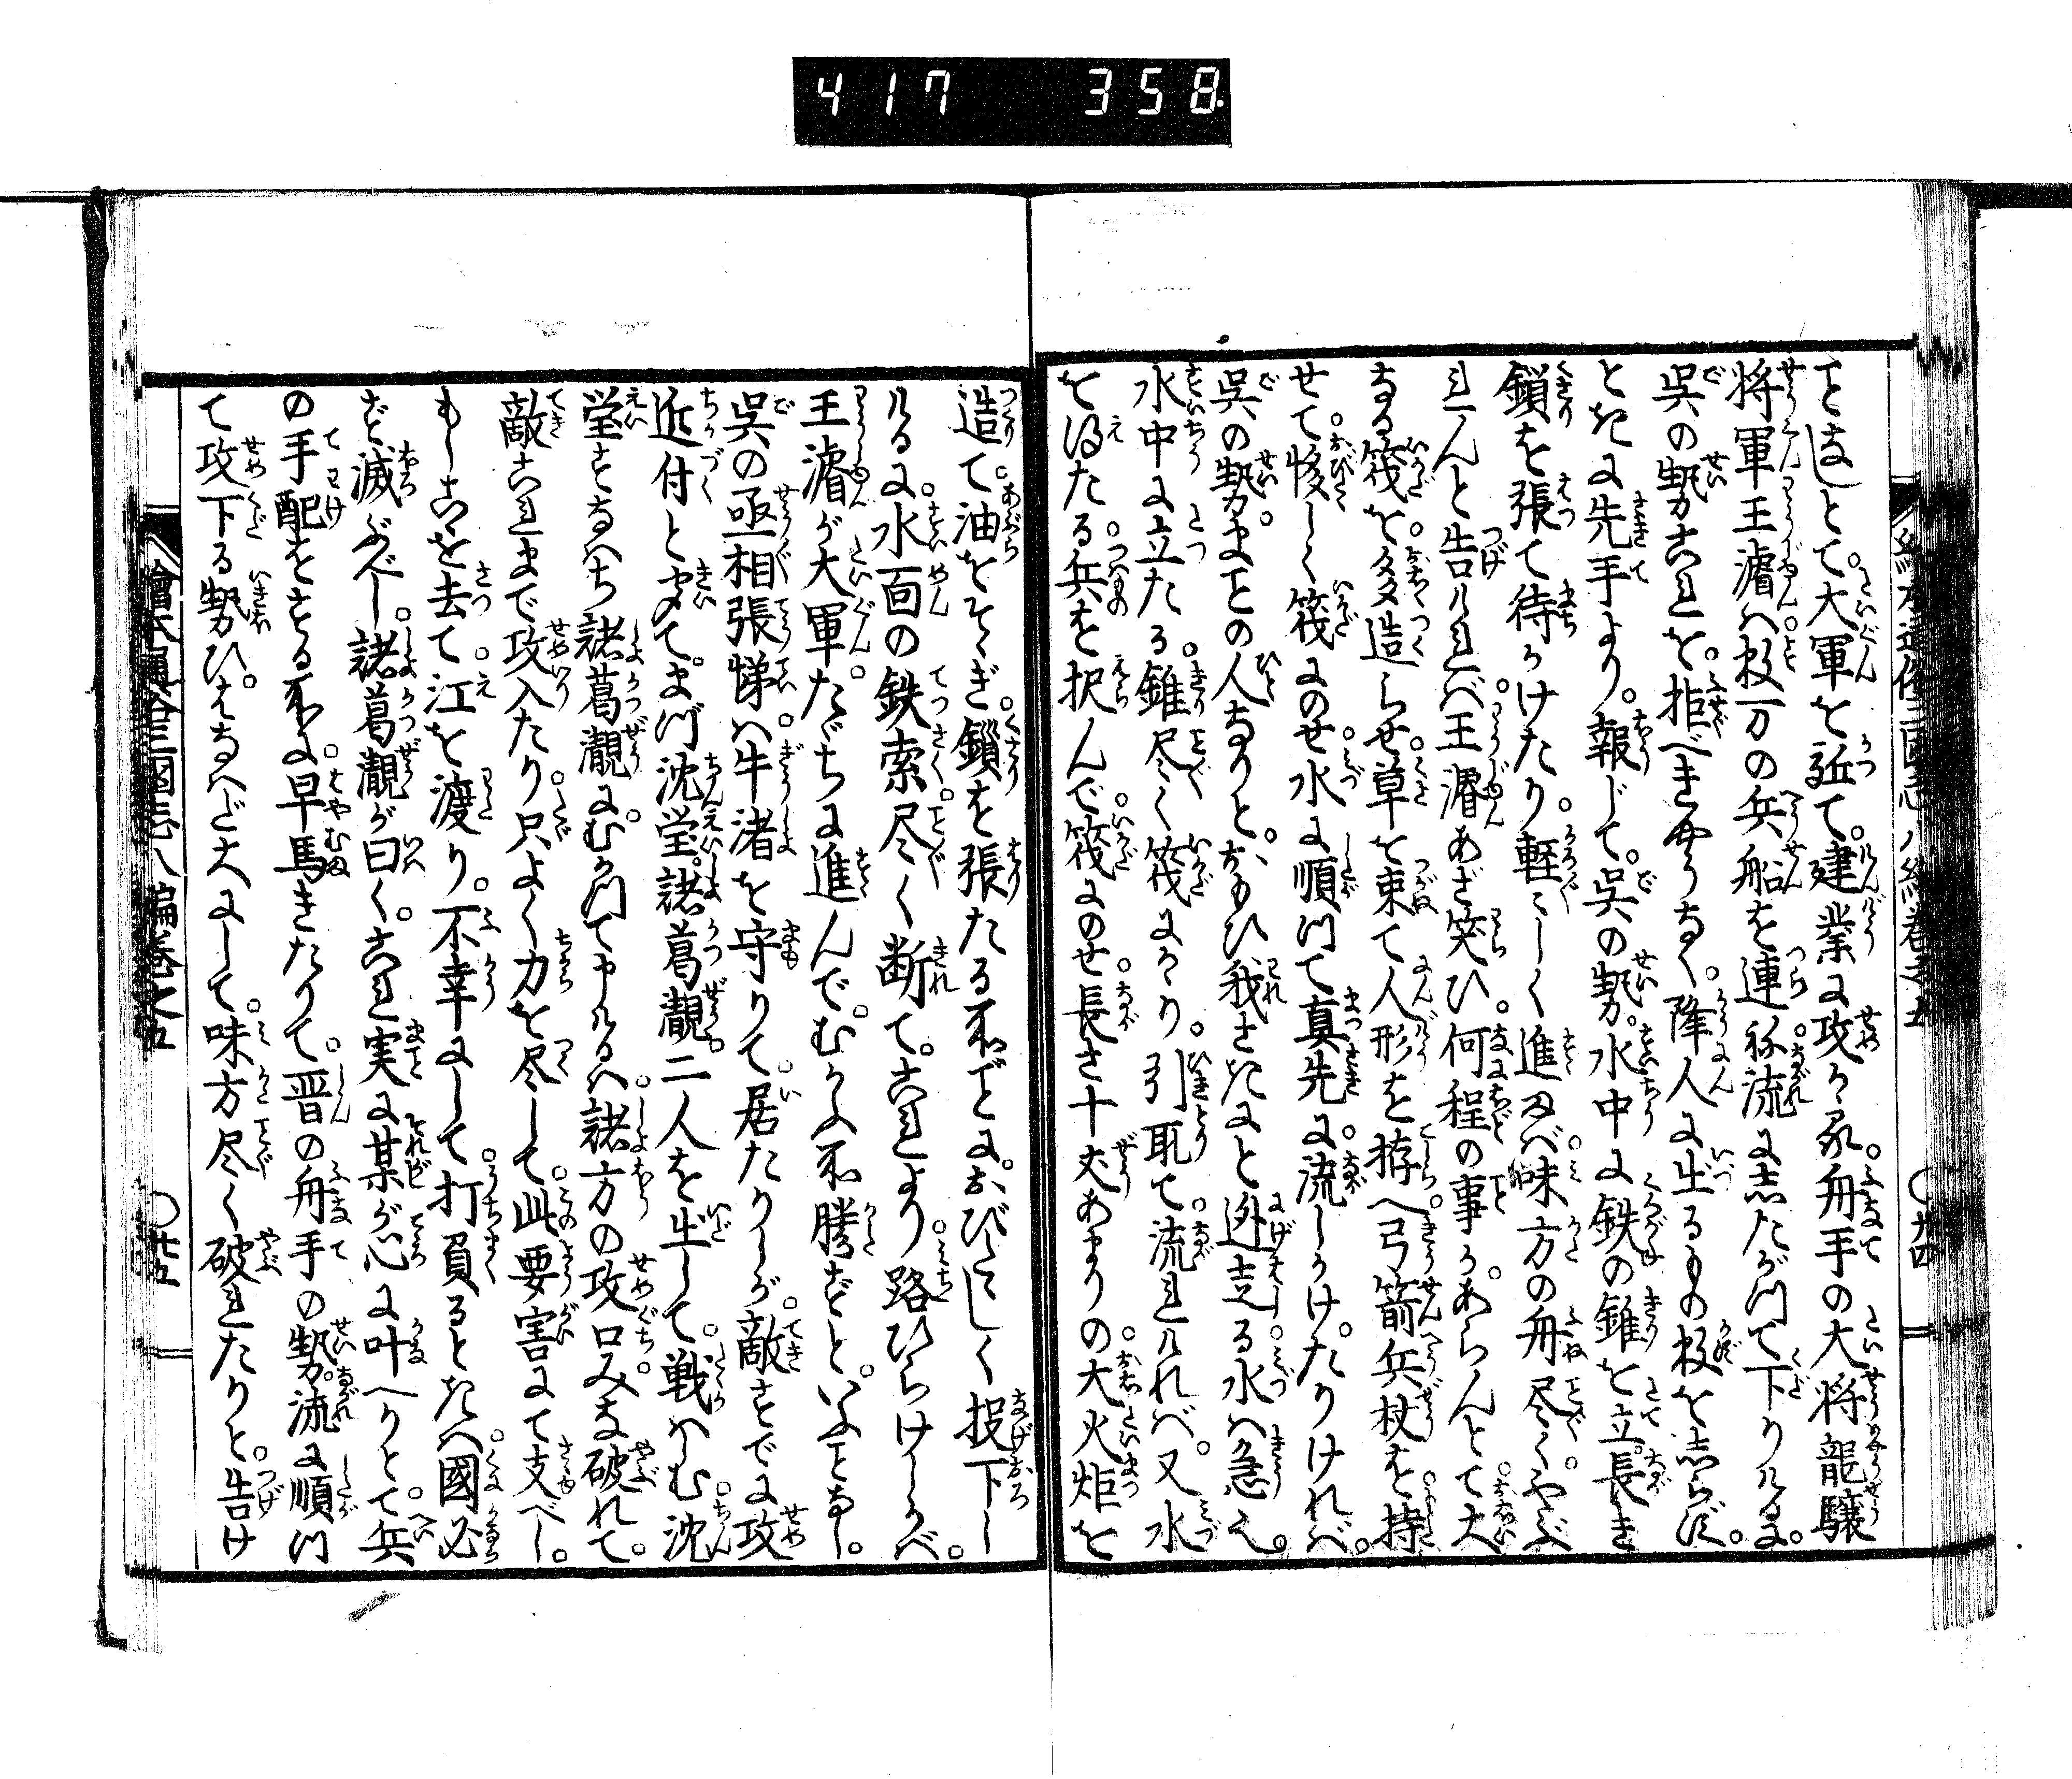 417 358
てとまして。大軍を延て。建業に攻くる。舟手の大将龍驤
将軍王濬ハ数万の兵船を連ね。流にしたがつて下りけるに。
呉の勢これを。拒べきやうなく。降人に出るもの数をしらず。
ときに先手より。報じて。呉の勢。水中に鉄の錐を立。長き
鎖を張て待かけたり。軽〻しく進まば。味方の舟尽く。やぶ
れんと告けれバ。王濬あざ笑ひ。何程の事かあらんとて。大
なる筏を。多造らせ。草を束て人形を拵へ弓箭兵杖を持
せて。夥しく筏にのせ。水に順つて真先に。流しかけたりければ。
呉の勢。まことの人なりと。おもひ我さきにと迯走る。水ハ急也。
水中に立たる。錐尽く筏にかゝり。引取て。流れければ。又水
を得たる。兵を択んで。筏にのせ。長さ十丈あまりの。大火炬を
造て。油をそゝぎ。鎖を張たる所ごとに。おびたゞしく投下し
けるに。水面の鉄索。尽く断て。これより。路ひらけしかバ。
王濬が大軍。たゞちに進んで。むかふ所勝ずと。いふことなし。
呉の丞相張悌ハ。牛渚を守りて。居たりしが。敵すでに攻
近付と聞て。まづ沈瑩。諸葛靚。二人を出して。戦ハしむ。沈
瑩すなハち諸葛靚に。むかつて申けるハ。諸方の攻口。みな破れて。
敵これまで攻入たり。只よく力を尽して。此要害にて支べし。
もしこゝを去て。江を渡り。不幸にして。打負るときハ。國必
ず滅ぶべし。諸葛靚が曰く。これ実に某が心に叶へりとて。兵
の手配をする所に。早馬きたりて。晋の舟手の勢。流に順つ
て攻下る勢ひ。はなハだ大にして。味方尽く破れたりと。告け
繪本通俗三國志八編巻之五
〇廿四
繪本通俗三國志八編巻之五
〇廿五